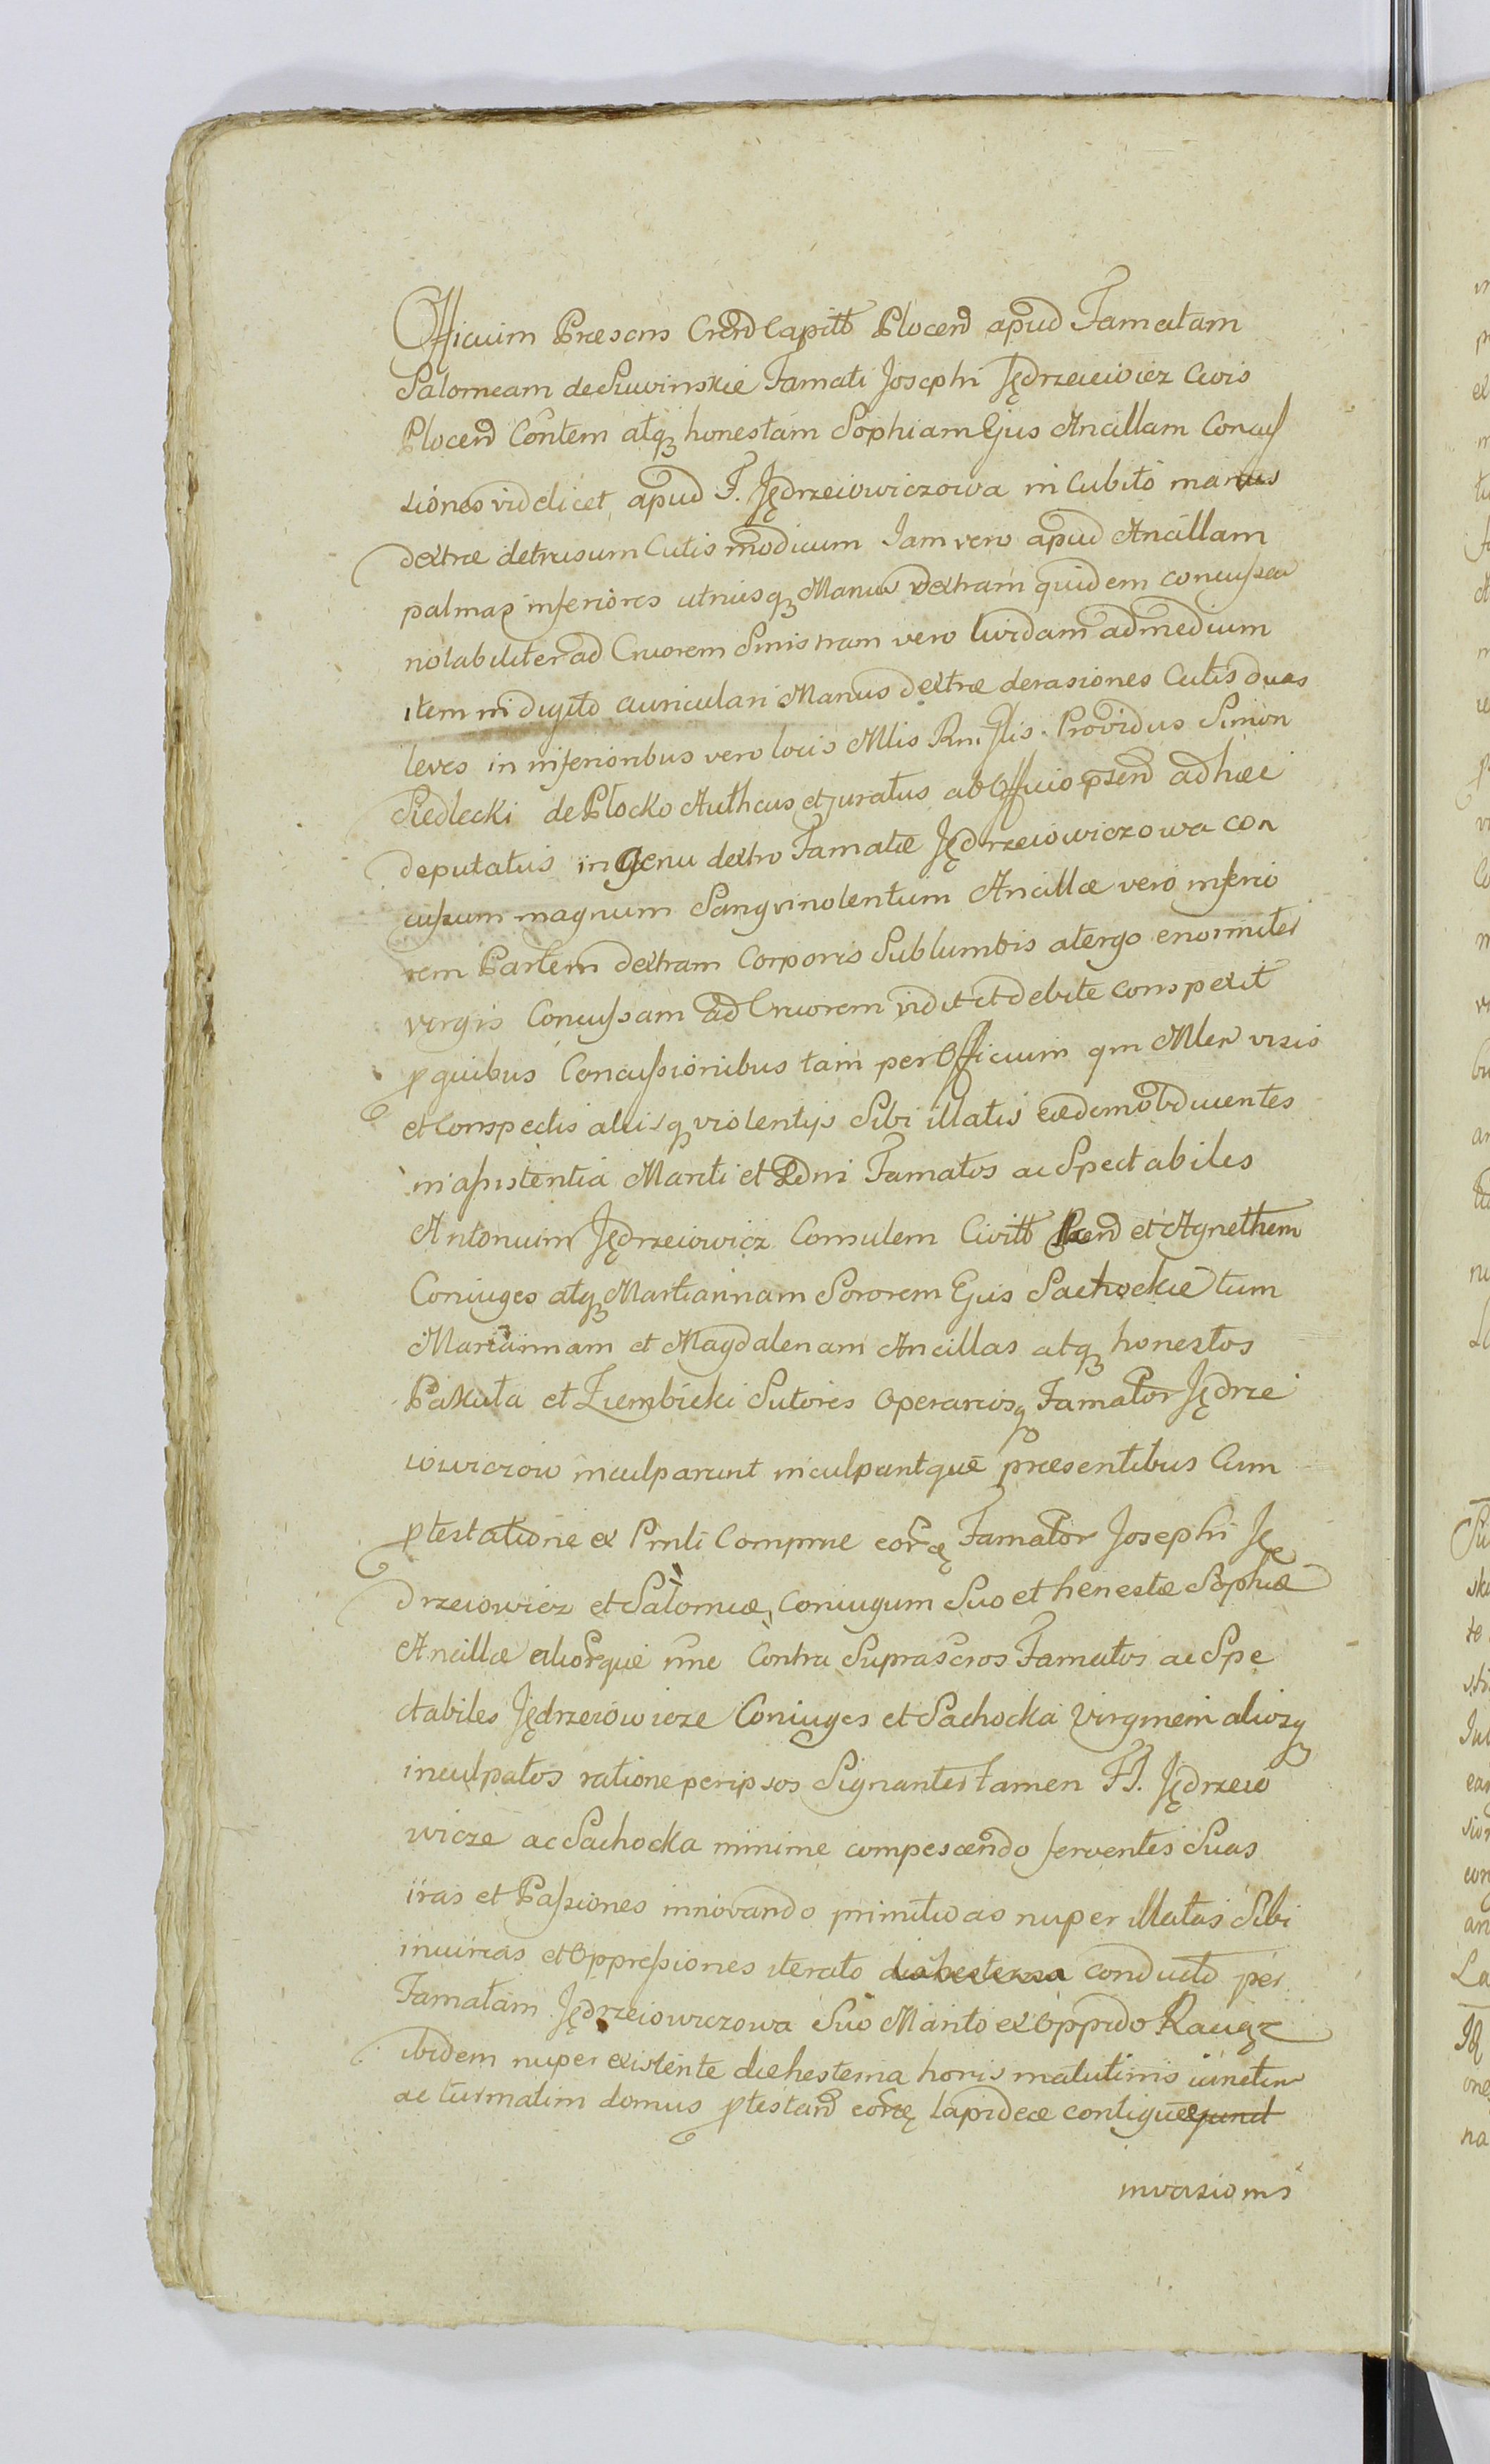 Officium Præsens Crend Capitt Plocen apud Famatam
Salomeam de Siuwinskie Famati Josephi Jędrzeiewicz Civis
Plocen Contem atq honestam Sophiam Ejus Ancillam Concus
siones videlicet apud F. Jędrzeiowiczowa in Cubito manus
dextræ detrusum Cutis modicum Iam vero apud Ancillam
palmas inferiores utriusq Manus dextram quidem concussam
notabiliter ad Cruorem Sinistram vero lividam ad medium
item in digito auriculari Manus dextræ derasiones Cutis duas
leves in inferioribus vero locis Mlis Providus Simon
Siedlecki de Plocko Autheus et juratus ab Officio pśend ad hæc
deputatus in Genu dextro Famatæ Jędrzeiowiczowa con
cussum magnum Sangvinolentum Ancillæ vero inferio
rem Partem dextram Corporis Sub lumbis a tergo enormiter
virgis Concussam ad Cruorem vidit et debite conspexit
p quibus Concussionibus tam per Officium qm Mler visis
et Conspectis aliisq violentijs Sibi illatis eædem obducentes
in assistentia Mariti et Dni Famatos ac Spectabiles
Antonium Jędrzeiowicz Consulem Civitt et Agnethem
Coniuges atq Martiannam Sororem Ejus Sachockie tum
Mariannam et Magdalenam Ancillas atq honestos
Pakuła et Ziembicki Sutores Operariosq Famator Jędrze
iowiczow inculparunt inculpantque præsentibus Cum
ptestatione ex Prnti Comprne eoræ Famator Josephi Ję
drzeiowicz et Salomeæ Coniugum Suo et henestæ Sophiæ
Ancillæ aliorque nne Contra Suprascros Famatos ac Spe
ctabiles Jędrzeiowicze Coniuges et Sachocka Virginem aliosq
inculpatos ratione per ipsos Signanter tamen FF. Jędrzeio
wicze ac Sachocka minime compescendo ferventes Suas
iras et Passiones innovando primitivas nuper illatas Sibi
iniurias et Oppressiones iterato conducto per
Famatam Jędrzeiowiczowa Suo Marito ex Oppido Raciąż
ibidem nuper existente die hesterna horis matutinis iunctim
ac turmatim domus ptestand eorę lapideæ contiguæ
invasionis